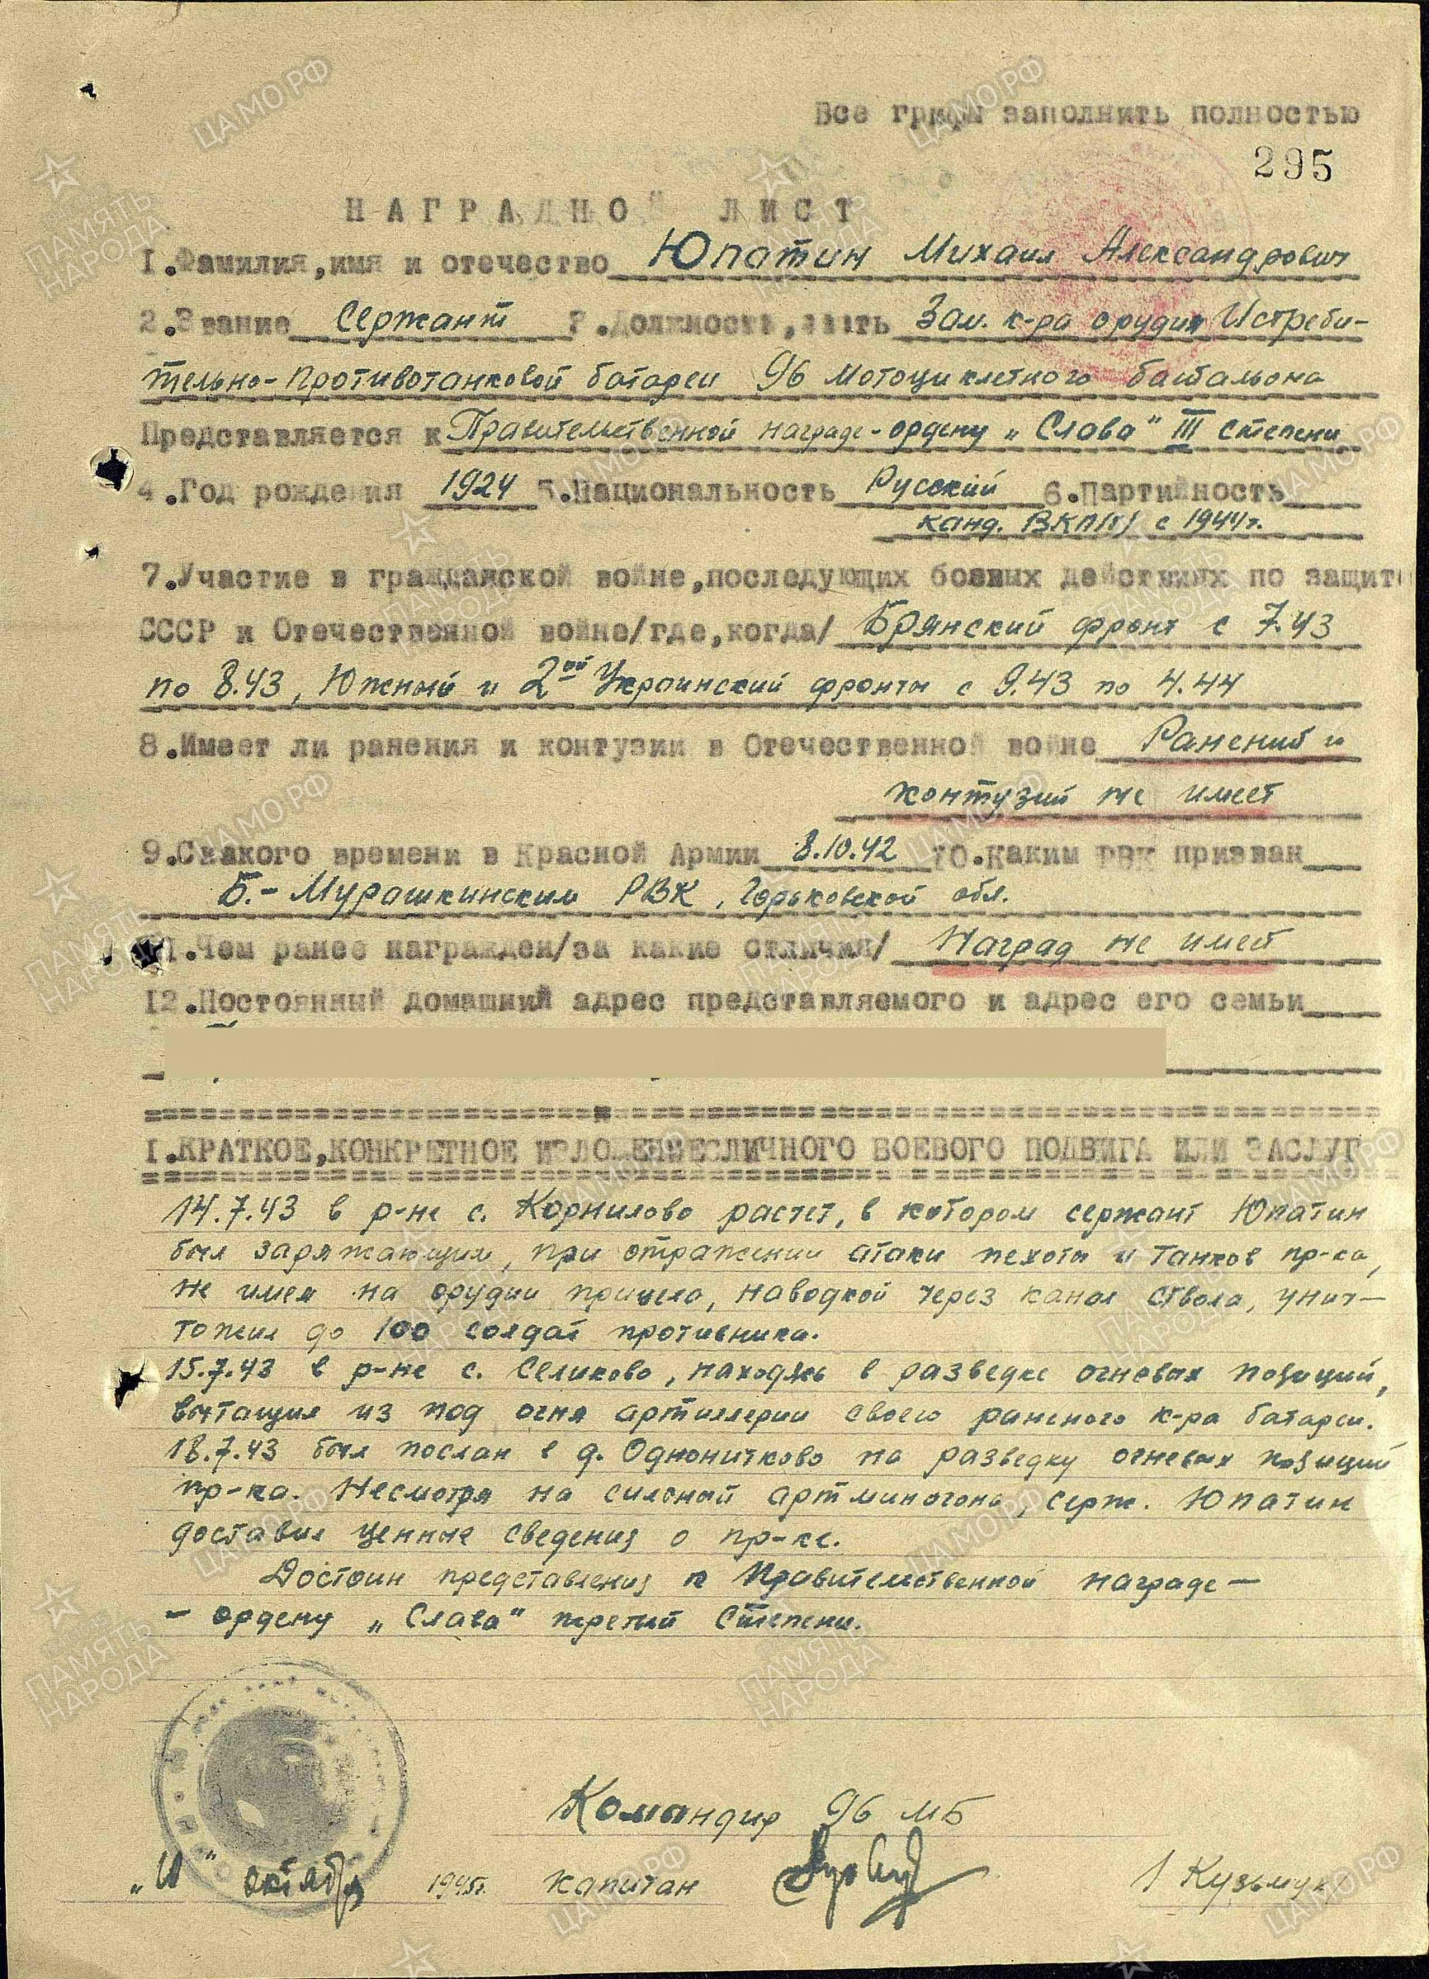 Все грифы заполнить полностью
295
НАГРАДНОЙ ЛИСТ
1.Фамилия,имя и отечество Юпатин Михаил Александрович
2.Звание Сержант 3.Должность,часть Зам. к-ра орудия Истреби-
тельно-противотанковой батареи 96 мотоциклетного батальона
Представляется к Правительственной награде-ордену „Слава" III степени
4.Год рождения 1924 5.Национальность Русский 6.Партийность
канд. ВКП/б/ с 1944г.
7.Участие в гражданской войне,последующих боевых действиях по защит
СССР и Отечественной войне/где,когда/ Брянский фронт с 7.43
по 8.43, Южный и 2ой Украинский фронты с 9.43 по 4.44
8.Имеет ли ранения и контузии в Отечественной войне Ранений и
контузий не имеет
9.С какого времени в Красной Армии 8.10.42 10.Каким РВК призван
Б.-Мурашкинским РВК, Горьковской обл.
11.Чем ранее награжден/за какие отличия/ Наград не имеет
12.Постоянный домашний адрес представляемого и адрес его семьи
I.КРАТКОЕ,КОНКРЕТНОЕ ИЗЛОЖЕНИЕ ЛИЧНОГО БОЕВОГО ПОДВИГА ИЛИ ЗАСЛУГ
14.7.43 в р-не с. Корнилово расчет, в котором сержант Юпатин
был заряжающим, при отражении атаки пехоты и танков пр-ка,
не имея на орудии прицела, наводкой через канал ствола, унич-
тожил до 100 солдат противника.
15.7.43 в р-не с. Селихово, находясь в разведке огневых позиций,
вытащил из под огня артиллерии своего раненого к-ра батареи.
18.7.43 был послан в д. Однонитково на разведку огневых позиций
пр-ка. Несмотря на сильный артминогонь, серж. Юпатин
доставил ценные сведения о пр-ке.
Достоин представления к Правительственной награде-
- ордену „Слава" третий степени.
Командир 96 МБ
октября 1945г. капитан / Кузьмук
ЦАМО.РФ
ПАМЯТЬ НАРОДА